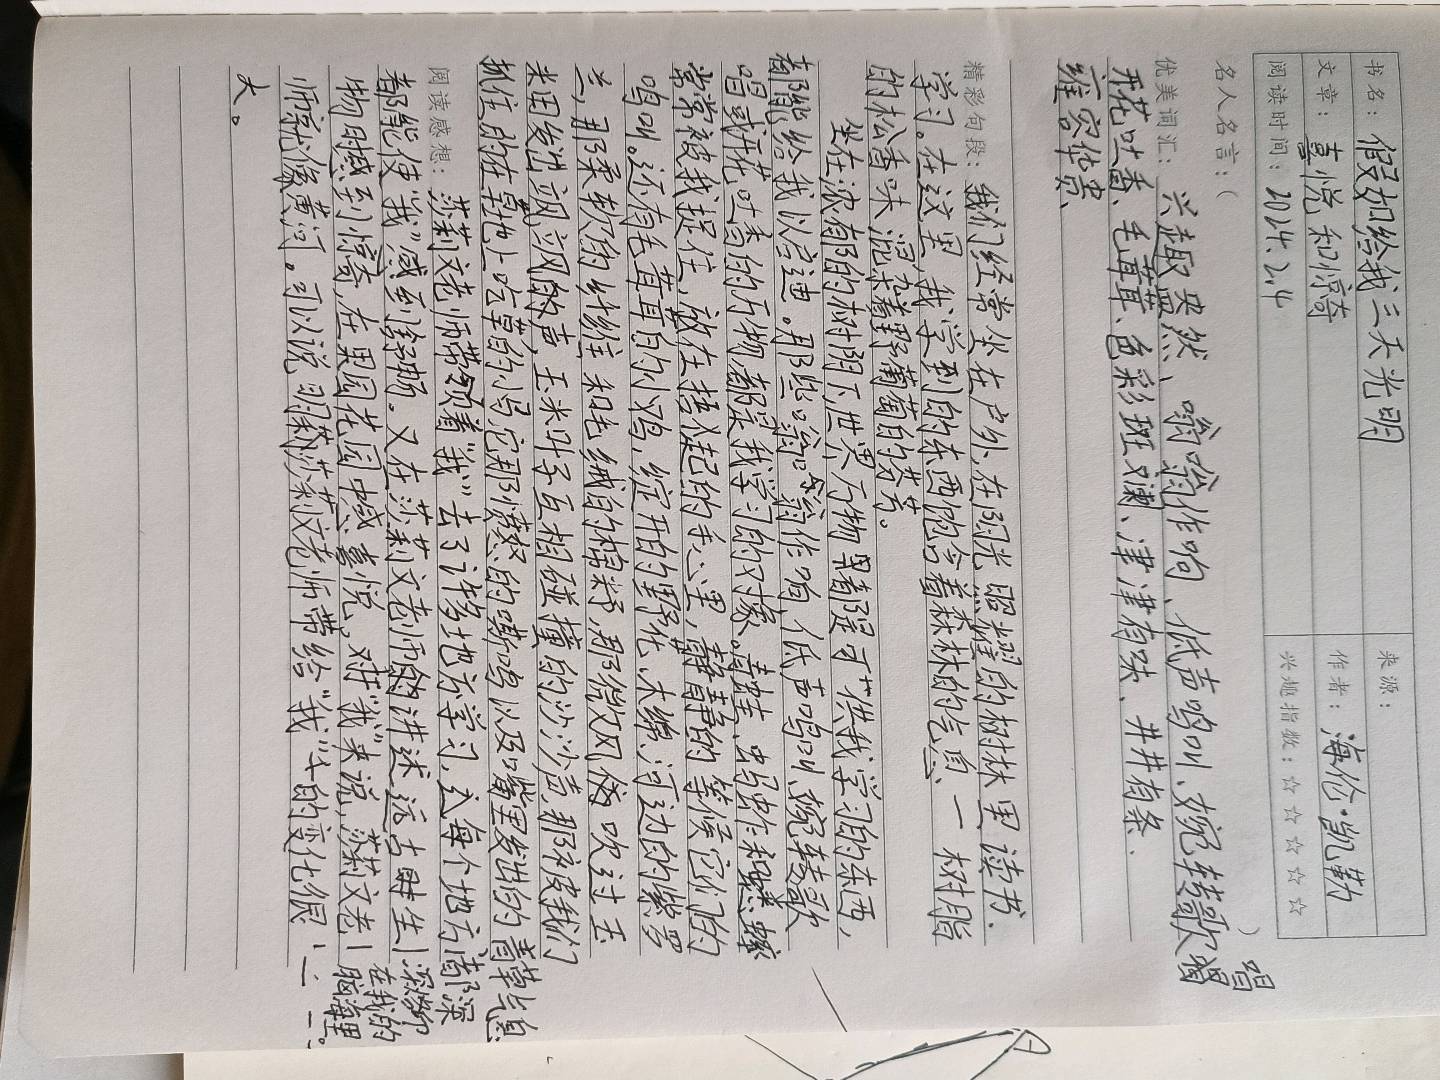 书名：假如给我三天光明 来源：
文章：喜悦和惊奇 作者：海伦·凯勒
阅读时间：2024.2.4 兴趣指数：☆☆☆☆☆
名人名言：（ ）
优美词汇：兴趣盎然、嗡嗡作响、低声鸣叫、婉转歌唱
开花吐香、毛茸茸、色彩斑斓、津津有味、井井有条、
雍容华贵
精彩句段：我们经常坐在户外，在阳光照耀的树林里读书.
学习。在这里，我学到的东西饱含着森林的气息、一树脂
的松香味混杂着野葡萄的芳香。
坐在浓郁的树阴下，世界万物都是可供我学习的东西，
都能给我以启迪。那些嗡嗡作响、低声鸣叫、婉转歌
唱或开花吐香的万物都是我学习的对像。青蛙、蚂蚱和蟋蟀
常常被我捉住，放在捂起的手心里，静静的等候它们的
鸣叫。还有毛茸茸的小鸡，绽开的野花、木绵、河边的紫罗
兰，那柔软的纤维和毛绒的棉籽，那微风吹过玉
米田发出的飒飒声，玉米叶子互相碰撞的沙沙声，那被我们
抓住的在草地上吃草的小马，它那愤怒的嘶鸣以及嘴里发出的青草气息
阅读感想：莎莉文老师带领着“我”去了许多地方学习，每个地方都深
都能使“我”感到舒畅。又在莎莉文老师的讲述，
物时感到惊奇，在果园花园中感喜悦。对“我”来说，莎莉文老
师就像黄河。可以说明莎莉文老师带给“我”的变化很
大。
深烙印
在我的
脑海里。